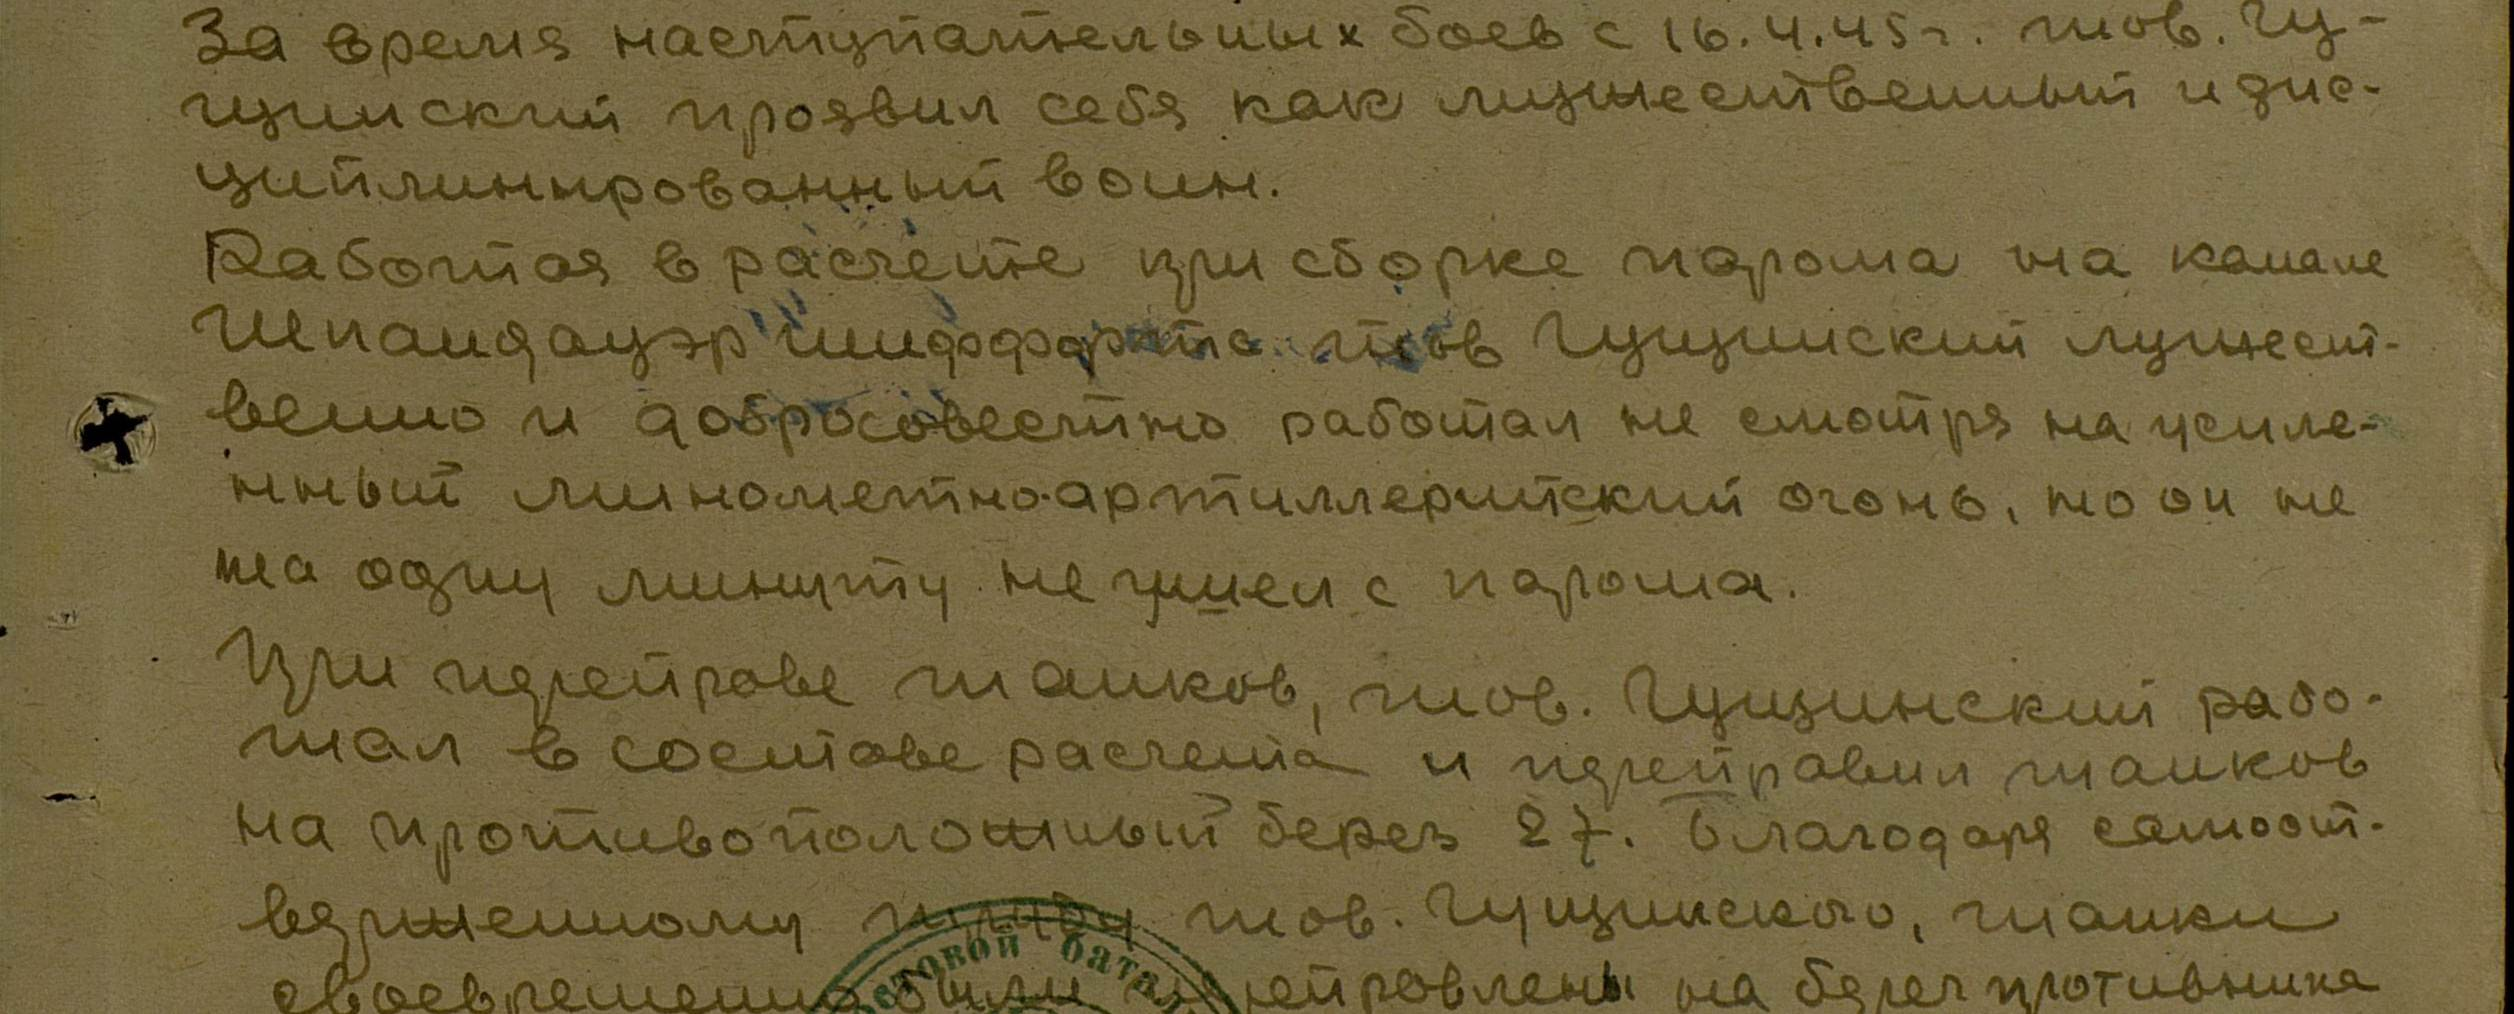 За время наступательных боев с 16.4.45 г. тов. Гу-
щинский проявил себя как мужественный и дис-
циплинированный воин.
Работая в расчете при сборке парома на канале
Шпандауэр шиффартс тов Гущинский мужест-
венно и добросовестно работал не смотря на усиле-
нный минометно-артиллерийский огонь, но он не
на одну минуту не ушел с парома.
При переправе танков, тов. Гущинский рабо-
тал в составе расчета и переправил танков
на противоположный берег 27. Благодаря самоот-
верженному труду тов. Гущинского, танки
своевременно были переправлены на берег противника
мостовой батал